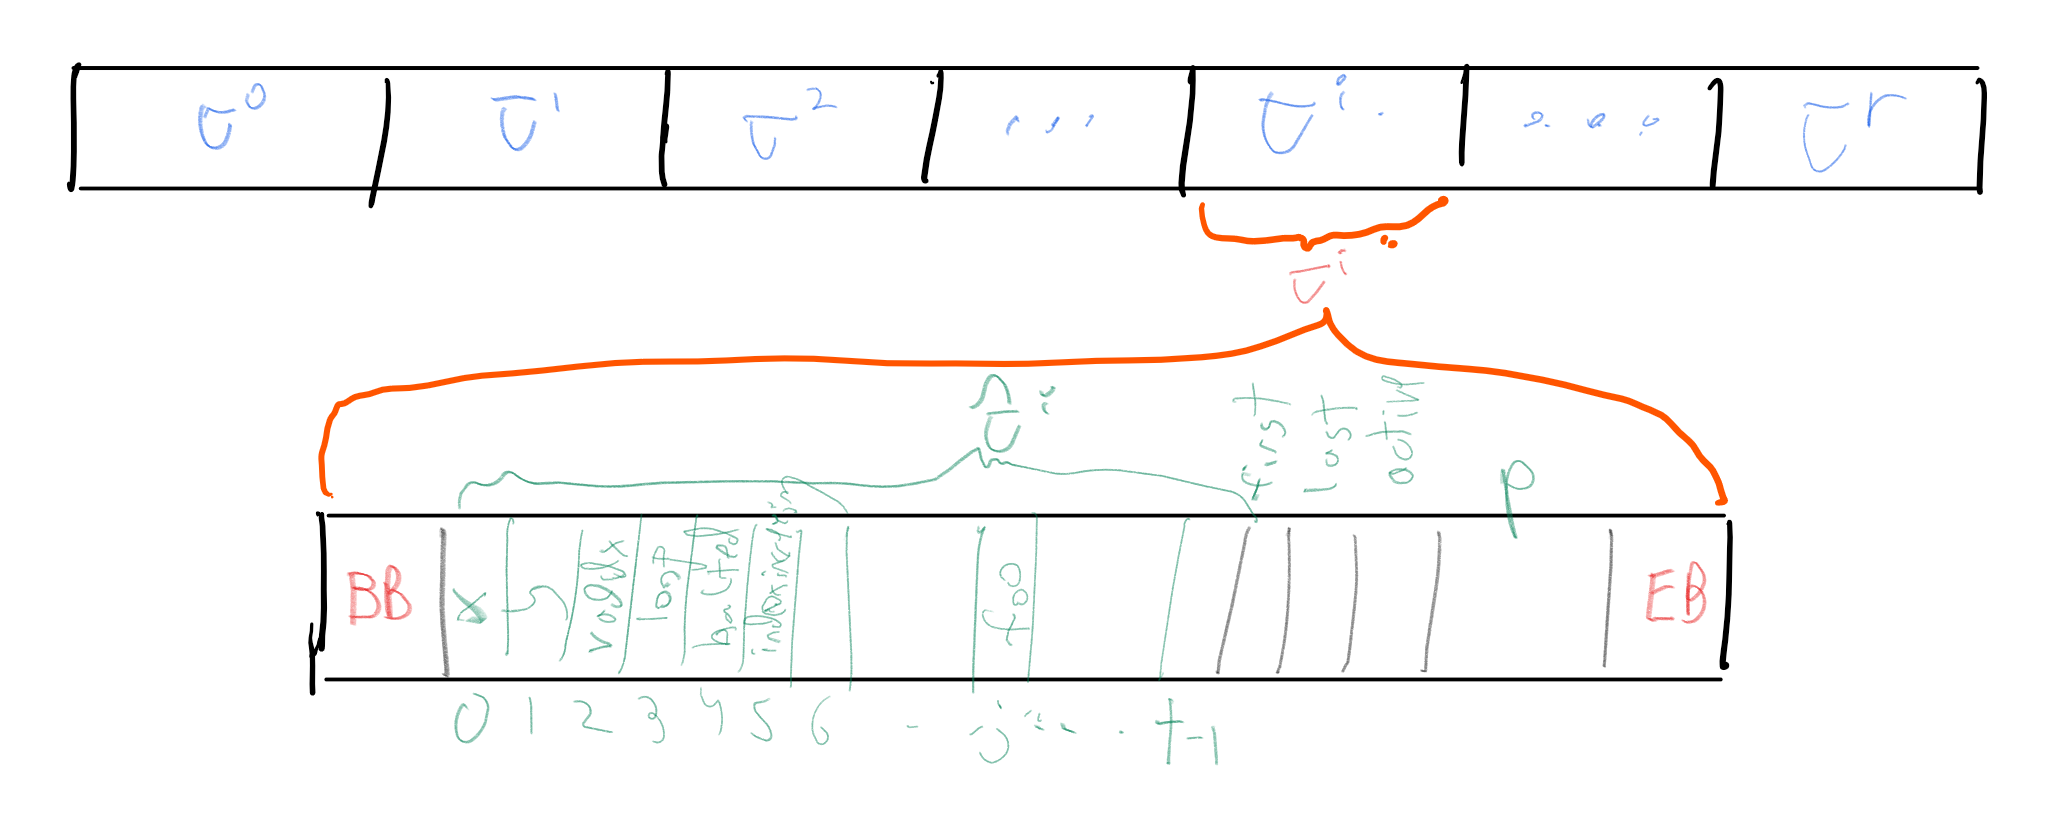 τ⁰ τ¹ τ² ... τⁱ ... τʳ
τⁱ
τ̂ⁱ first last active p
BB x y loop halted foo EB
0 1 2 3 4 5 6 - j ... . t-1